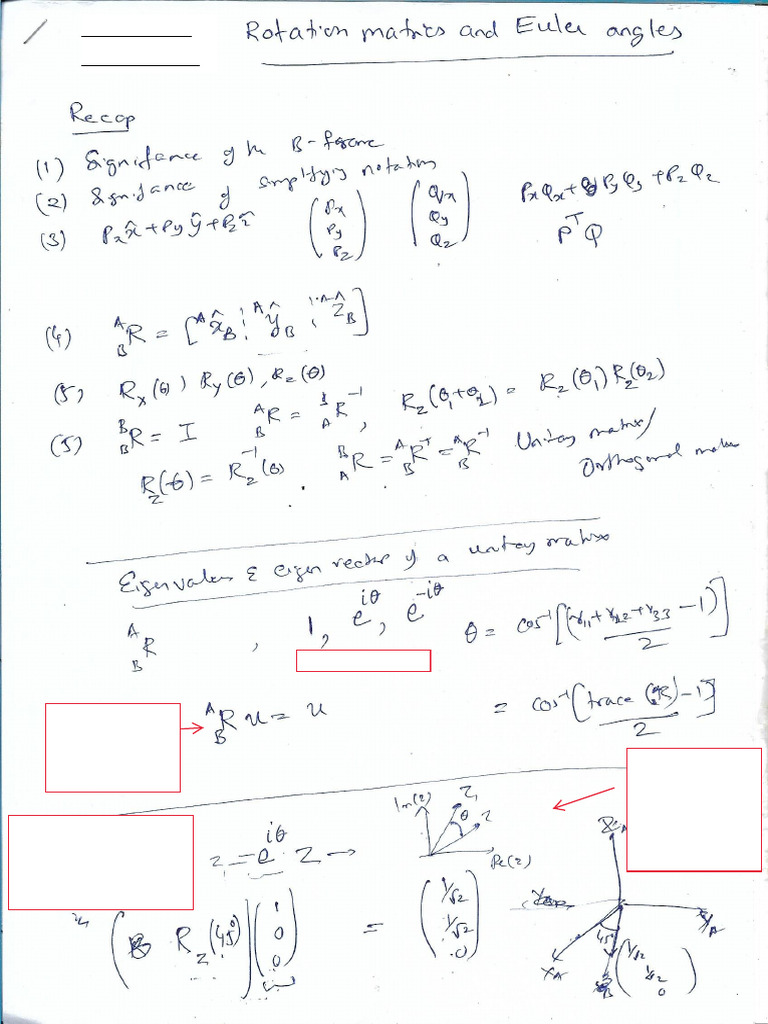 Rotation matrics and Euler angles
Recap
(1) Significance of the B-frame
(2) Significance of simplifying notation
(3) Pxx̂ + Pyŷ + Pzẑ (Px Py Pz) (Qx Qy Qz) PxQx + PyQy + PzQz
PᵀQ
(4) ᴬ_BR = [ᴬx̂_B ¦ ᴬŷ_B ¦ ᴬẑ_B]
(5) Rx(θ), Ry(θ), Rz(θ)
(5) ᴮ_BR = I ᴬ_BR = ᴮ_AR⁻¹, Rz(θ₁+θ₂) = Rz(θ₁)Rz(θ₂)
Rz(-θ) = Rz⁻¹(θ). ᴮ_AR = ᴬ_BRᵀ = ᴬ_BR⁻¹ Unitary matrix/
Orthogonal matrix
Eigenvalues & eigen vector of a unitary matrix
ᴬ_BR , 1, e^{iθ}, e^{-iθ} θ = cos⁻¹[(r₁₁+r₂₂+r₃₃-1)/2]
ᴬ_BR u = u = cos⁻¹[(trace(R)-1)/2]
Im(z) z₁ θ z Re(z)
z₁ = e^{iθ} z →
(Rz(45°)) (1 0 0) = (1/√2 1/√2 0)
45° X_A Y_A (1/√2 1/√2 0)